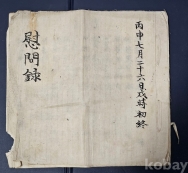 丙申七月二十六日戌時初終
慰問錄
kobay